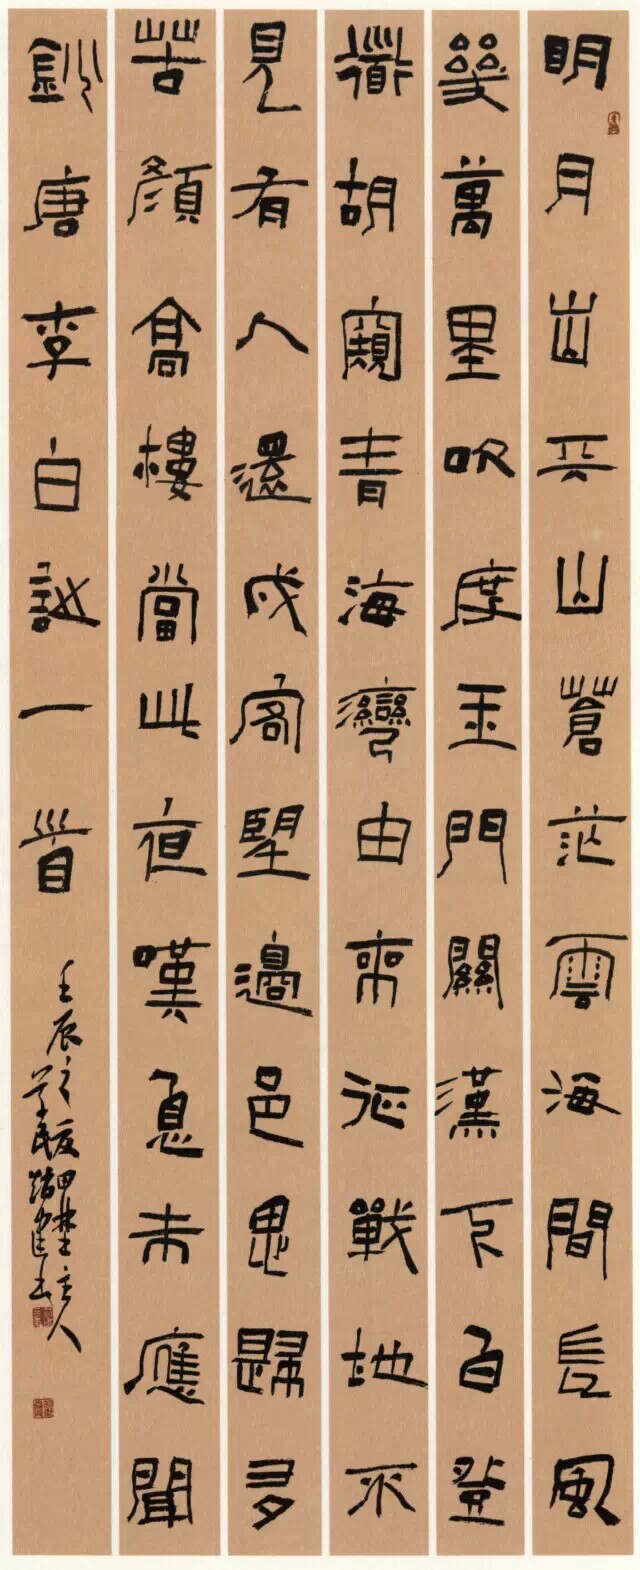 明月出天山蒼茫雲海間長風
幾萬里吹度玉門關漢下白登
道胡窺青海灣由來征戰地不
見有人還戍客望邊邑思歸多
苦顏高樓當此夜嘆息未應聞
鈔唐李白詩一首
壬辰之夏 主人